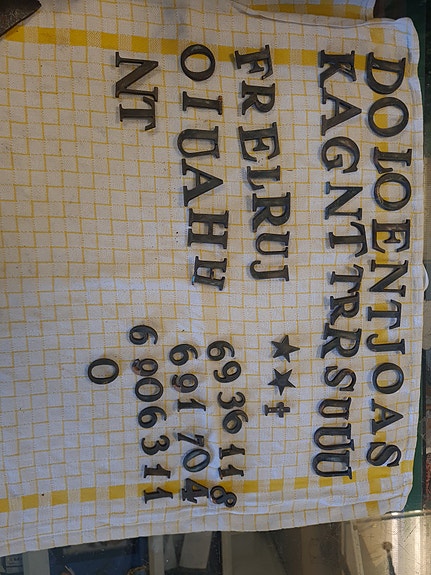 DOLOENTJOAS
KAGNTTRRSUUU
FRELRUJ ★★✝
OIUAHH 6936118
691704
NT 6906311
O